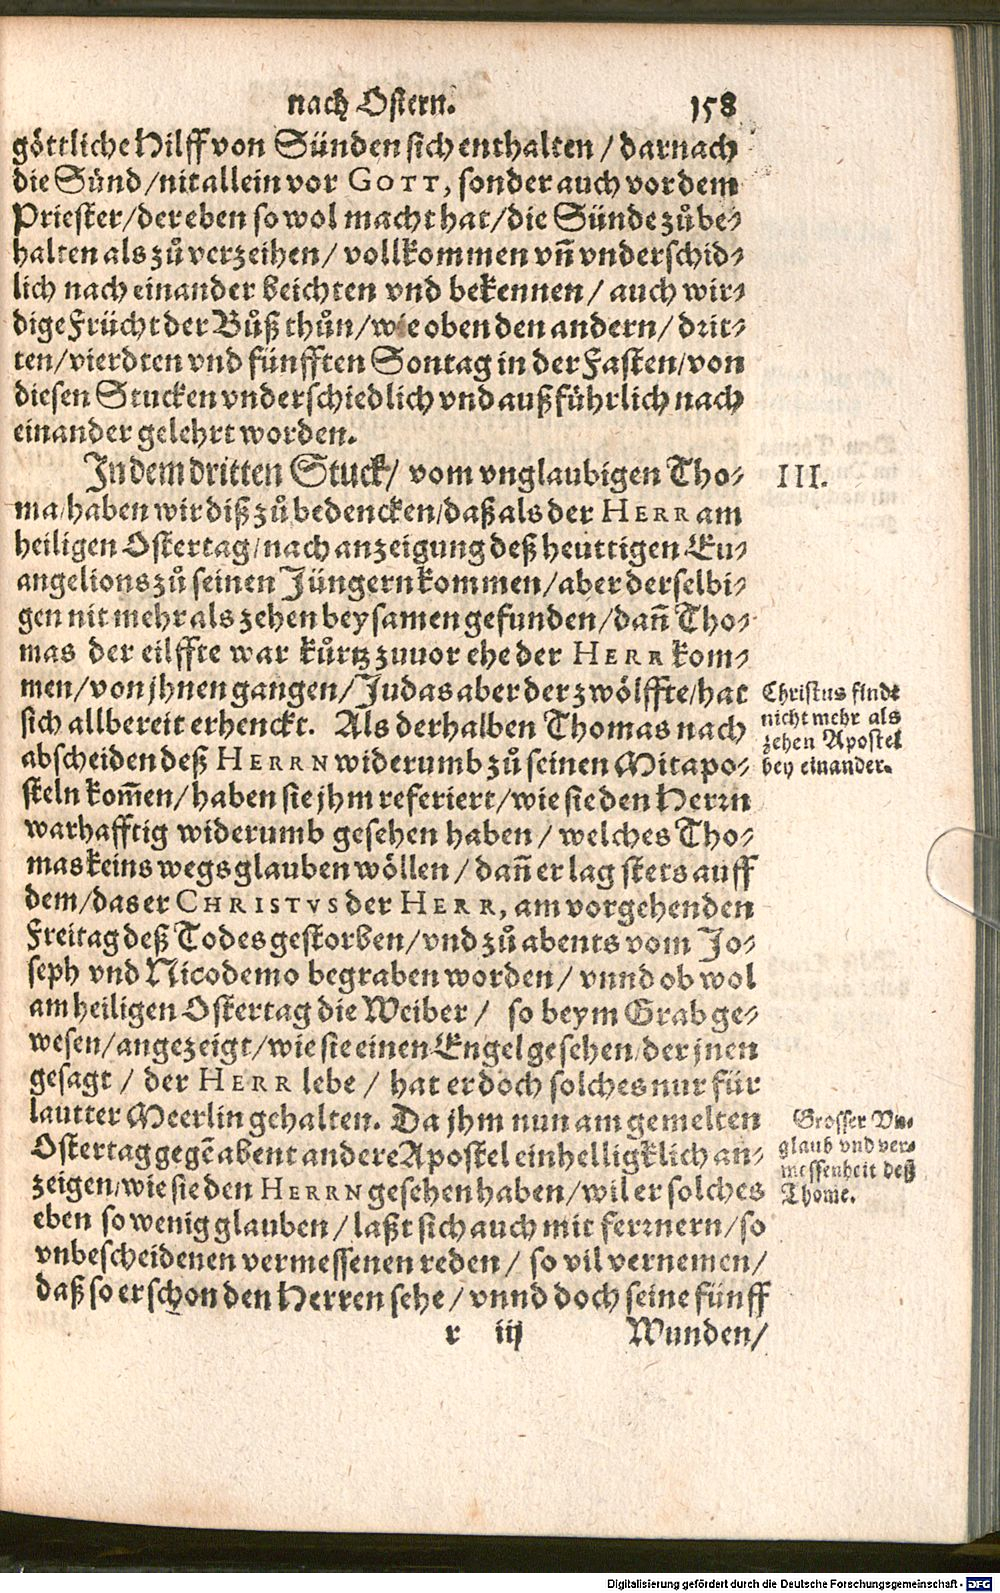 nach Ostern. 158
göttliche Hilff von Sünden sich enthalten / darnach
die Sünd / nit allein vor GOTT, sonder auch vor dem
Priester / der eben so wol macht hat / die Sünde zůbe-
halten als zů verzeihen / vollkommen vñ vnderschid-
lich nach einander beichten vnd bekennen / auch wir-
dige Frücht der Bůß thůn / wie oben den andern / drit-
ten / vierdten vnd fünfften Sontag in der Fasten / von
diesen Stucken vnderschiedlich vnd außführlich nach
einander gelehrt worden.
In dem dritten Stuck / vom vnglaubigen Tho-
III.
ma / haben wir diß zů bedencken / daß als der HERR am
heiligen Ostertag / nach anzeigung deß heuttigen Eu-
angelions zů seinen Jüngern kommen / aber derselbi-
gen nit mehr als zehen beysamen gefunden / dañ Tho-
mas der eilffte war kůrtz zuuor ehe der HERR kom-
men / von jhnen gangen / Judas aber der zwölffte / hat
sich allbereit erhenckt. Als derhalben Thomas nach
abscheiden deß HERRN widerumb zů seinen Mitapo-
steln kom̃en / haben sie jhm referiert / wie sie den Herrn
warhafftig widerumb gesehen haben / welches Tho-
mas keins wegs glauben wöllen / dañ er lag stets auff
dem / das er CHRISTVS der HERR, am vorgehenden
Freitag deß Todes gestorben / vnd zů abents vom Jo-
seph vnd Nicodemo begraben worden / vnnd ob wol
am heiligen Ostertag die Weiber / so beym Grab ge-
wesen / angezeigt / wie sie einen Engel gesehen / der jnen
gesagt / der HERR lebe / hat er doch solches nur für
lautter Meerlin gehalten. Da jhm nun am gemelten
Ostertag gegē abent andere Apostel einhelligklich an-
zeigen / wie sie den HERRN gesehen haben / wil er solches
eben so wenig glauben / laßt sich auch mit ferrnern / so
vnbescheidenen vermessenen reden / so vil vernemen /
daß so er schon den Herren sehe / vnnd doch seine fünff
r iij Wunden /
Christus findt
nicht mehr als
zehen Apostel
bey einander.
Grosser Vn-
glaub vnd ver-
messenheit deß
Thome.
Digitalisierung gefördert durch die Deutsche Forschungsgemeinschaft - DFG